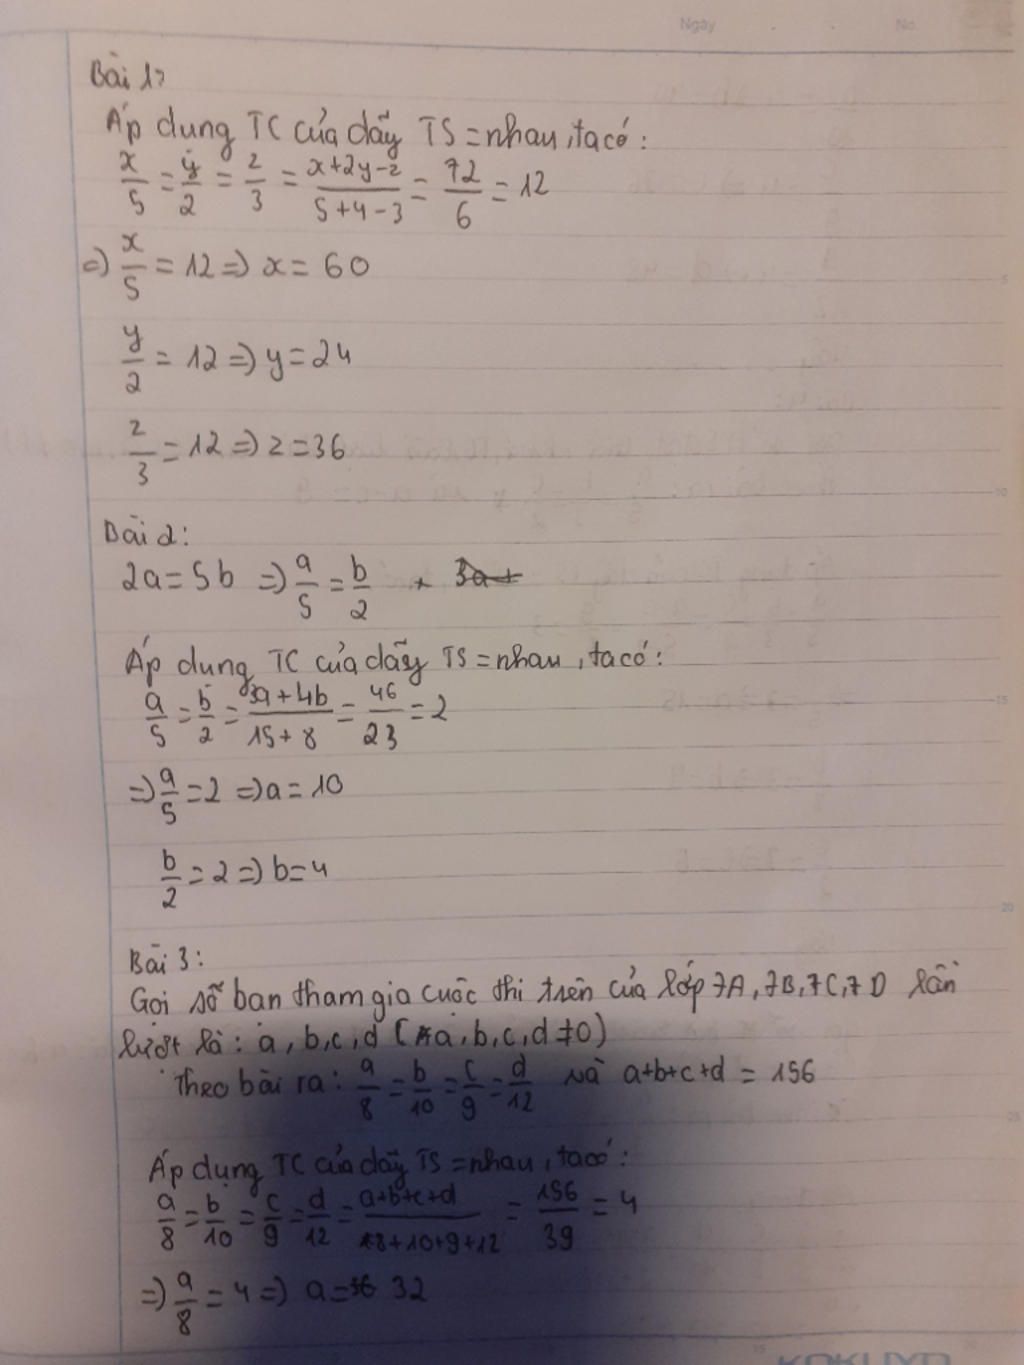 Ngày . . No.
Bài 1:
Áp dung TC của dãy TS = nhau, ta có:
x/5 = y/2 = z/3 = (x+2y-z)/(5+4-3) = 72/6 = 12
=> x/5 = 12 => x = 60
y/2 = 12 => y = 24
z/3 = 12 => z = 36
Bài 2:
2a = 5b => a/5 = b/2
Áp dung TC của dãy TS = nhau, ta có:
a/5 = b/2 = (3a+4b)/(15+8) = 46/23 = 2
=> a/5 = 2 => a = 10
b/2 = 2 => b = 4
Bài 3:
Goi số ban tham gia cuôc thi trên của lớp 7A, 7B, 7C, 7D lần
lượt là: a, b, c, d (a, b, c, d ≠ 0)
Theo bài ra: a/8 = b/10 = c/9 = d/12 và a+b+c+d = 156
Áp dụng TC của dãy TS = nhau, ta có:
a/8 = b/10 = c/9 = d/12 = (a+b+c+d)/(8+10+9+12) = 156/39 = 4
=> a/8 = 4 => a = 32
KOKUYO